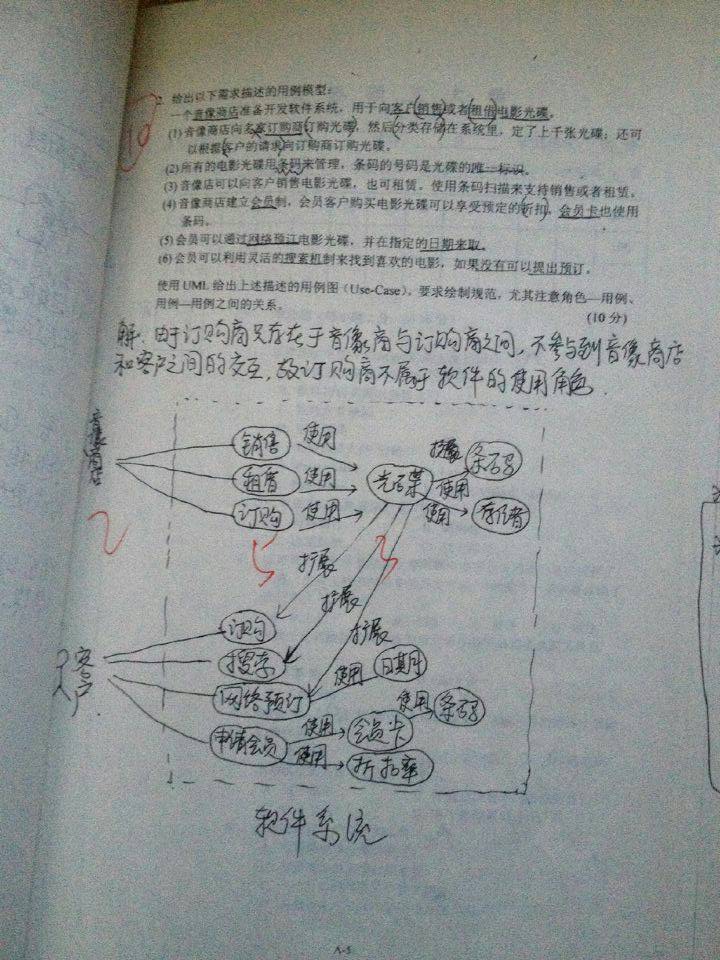 2. 给出以下需求描述的用例模型:
一个音像商店准备开发软件系统,用于向客户销售或者租借电影光碟。
(1) 音像商店向多家订购商订购光碟,然后分类存储在系统里,定了上千张光碟;还可
以根据客户的请求向订购商订购光碟。
(2) 所有的电影光碟用条码来管理,条码的号码是光碟的唯一标识。
(3) 音像店可以向客户销售电影光碟,也可租赁。使用条码扫描来支持销售或者租赁。
(4) 音像商店建立会员制,会员客户购买电影光碟可以享受预定的折扣,会员卡也使用
条码。
(5) 会员可以通过网络预订电影光碟,并在指定的日期来取。
(6) 会员可以利用灵活的搜索机制来找到喜欢的电影,如果没有可以提出预订。
使用 UML 给出上述描述的用例图(Use-Case),要求绘制规范,尤其注意角色—用例、
用例—用例之间的关系。
(10 分)
10
解: 由于订购商只存在于音像商与订购商之间,不参与到音像商店
和客户之间的交互,故订购商不属于软件的使用角色.
音像商店
销售 使用
租借 使用
订购 使用
光碟
扩展 条码
使用
使用
2 5 3
扩展
扩展
扩展
客户
订购
搜索
网络预订 使用 日期
申请会员 使用 会员卡 使用 条码
使用 折扣率
软件系统
A-5